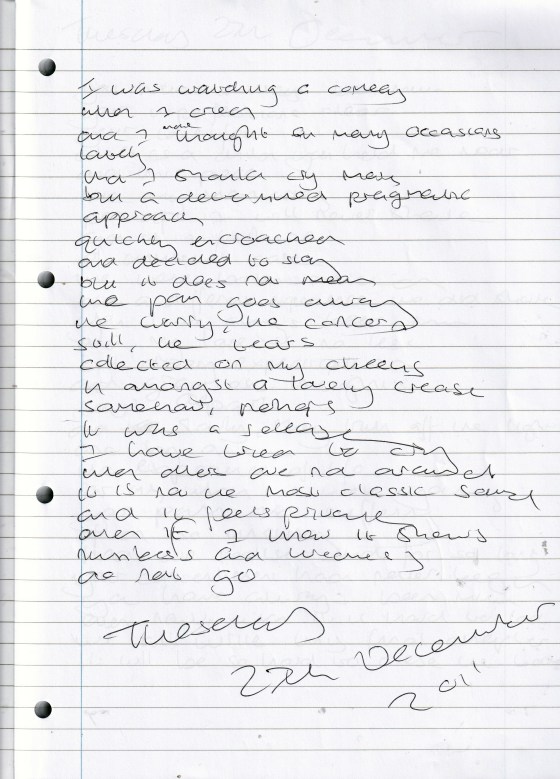 I was watching a comedy
when I cried
and I have thought on many occasions
lately
that I should cry more
but a determined pragmatic
approach
quickly encroached
and decided to stay
but it does not mean
the pain goes away
the worry, the concern
still, the tears
collected on my cheeks
in amongst a lovely crease
somehow, perhaps
it was a release
I have tried to cry
when others are not around
it is not the most classic sound
and it feels private
even if I know it shows
numbness and weariness
do not go
Tuesday
27th December
2011